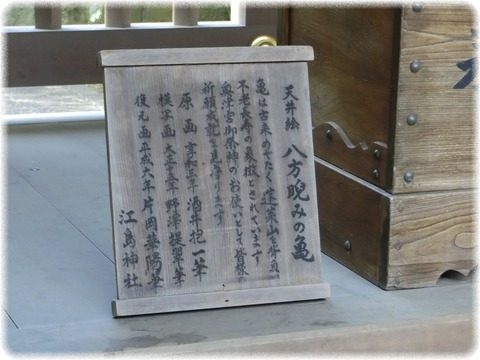 天井絵 八方睨みの亀
亀は古来めでたく蓬莱山を背負い
不老長寿の象徴とされています
奥津宮御祭神のお使いとして皆様の
祈願成就を見守ります
原画 享和三年 酒井抱一筆
模写画 大正十五年 野澤提雨筆
復元画 平成六年 片岡華陽筆
江島神社